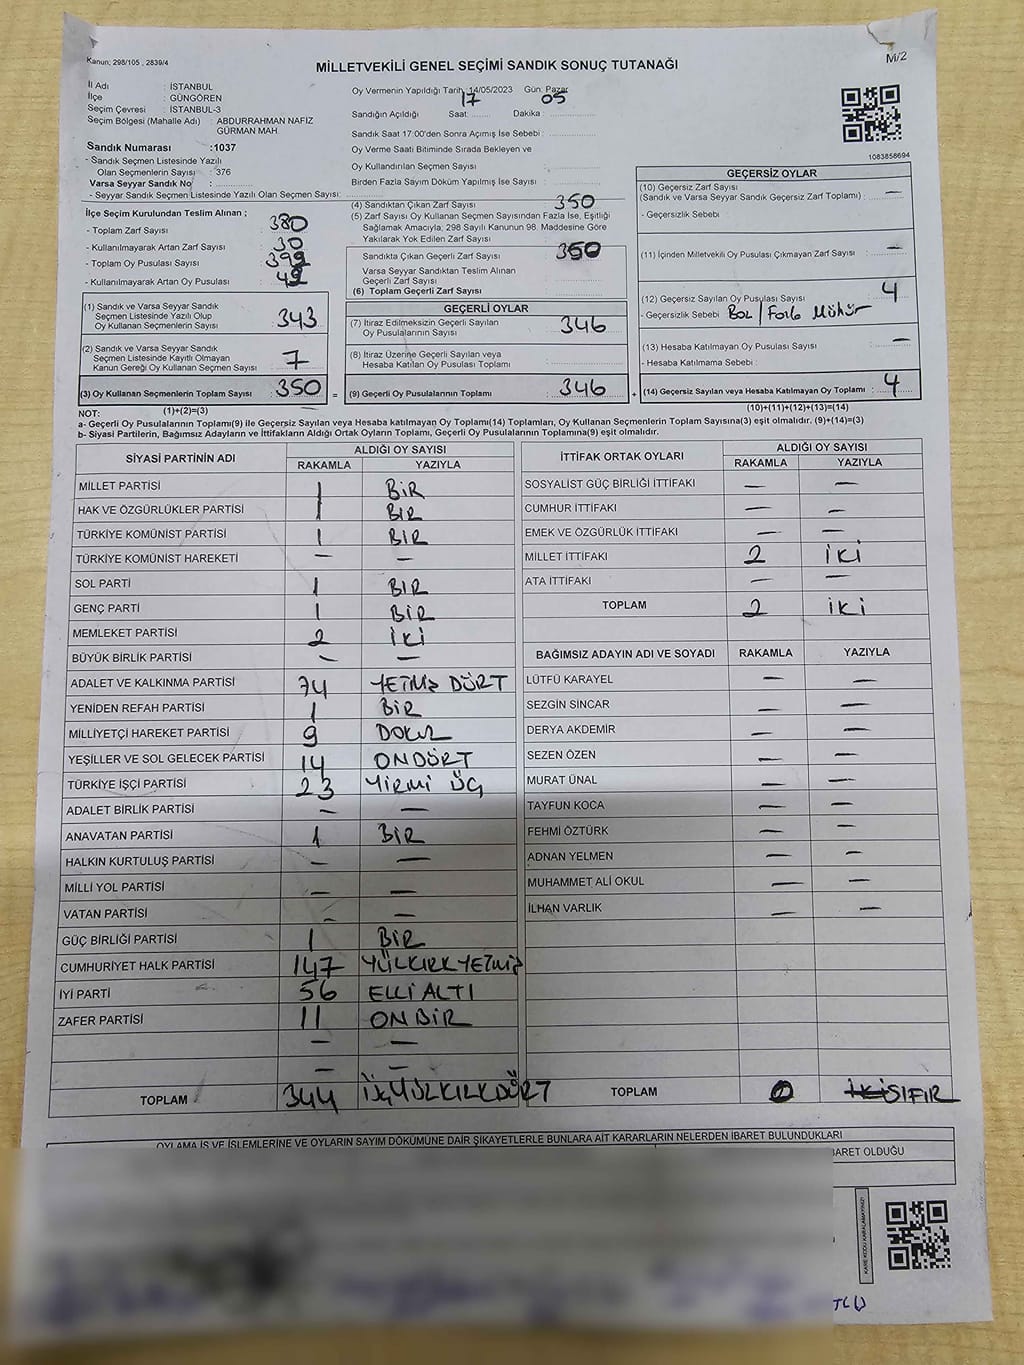 Kanun; 298/105 , 2839/4
M/2
MİLLETVEKİLİ GENEL SEÇİMİ SANDIK SONUÇ TUTANAĞI
İl Adı : İSTANBUL
İlçe : GÜNGÖREN
Seçim Çevresi : İSTANBUL-3
Seçim Bölgesi (Mahalle Adı) : ABDURRAHMAN NAFIZ
GÜRMAN MAH.
Sandık Numarası :1037
- Sandık Seçmen Listesinde Yazılı
Olan Seçmenlerin Sayısı : 376
Varsa Seyyar Sandık No :
- Seyyar Sandık Seçmen Listesinde Yazılı Olan Seçmen Sayısı:
Oy Vermenin Yapıldığı Tarih :14/05/2023 Gün: Pazar
Sandığın Açıldığı Saat: 17 Dakika : 05
Sandık Saat 17:00'den Sonra Açımış İse Sebebi :
Oy Verme Saati Bitiminde Sırada Bekleyen ve
Oy Kullandırılan Seçmen Sayısı :
Birden Fazla Sayım Döküm Yapılmış İse Sayısı :
1083858694
İlçe Seçim Kurulundan Teslim Alınan ;
- Toplam Zarf Sayısı : 380
- Kullanılmayarak Artan Zarf Sayısı : 30
- Toplam Oy Pusulası Sayısı :
- Kullanılmayarak Artan Oy Pusulası :
(1) Sandık ve Varsa Seyyar Sandık
Seçmen Listesinde Yazılı Olup
Oy Kullanan Seçmenlerin Sayısı : 343
(2) Sandık ve Varsa Seyyar Sandık
Seçmen Listesinde Kayıtlı Olmayan
Kanun Gereği Oy Kullanan Seçmen Sayısı : 7
(3) Oy Kullanan Seçmenlerin Toplam Sayısı : 350
(1)+(2)=(3)
(4) Sandıktan Çıkan Zarf Sayısı : 350
(5) Zarf Sayısı Oy Kullanan Seçmen Sayısından Fazla İse, Eşitliği
Sağlamak Amacıyla; 298 Sayılı Kanunun 98. Maddesine Göre
Yakılarak Yok Edilen Zarf Sayısı :
Sandıkta Çıkan Geçerli Zarf Sayısı : 350
Varsa Seyyar Sandıktan Teslim Alınan
Geçerli Zarf Sayısı :
(6) Toplam Geçerli Zarf Sayısı :
GEÇERLİ OYLAR
(7) İtiraz Edilmeksizin Geçerli Sayılan
Oy Pusulalarının Sayısı : 346
(8) İtiraz Üzerine Geçerli Sayılan veya
Hesaba Katılan Oy Pusulası Toplamı :
= (9) Geçerli Oy Pusulalarının Toplamı : 346
GEÇERSİZ OYLAR
(10) Geçersiz Zarf Sayısı
(Sandık ve Varsa Seyyar Sandık Geçersiz Zarf Toplamı) : —
- Geçersizlik Sebebi
(11) İçinden Milletvekili Oy Pusulası Çıkmayan Zarf Sayısı : —
(12) Geçersiz Sayılan Oy Pusulası Sayısı : 4
- Geçersizlik Sebebi : BOŞ / Fazla Mühür
(13) Hesaba Katılmayan Oy Pusulası Sayısı : —
- Hesaba Katılmama Sebebi :
+ (14) Geçersiz Sayılan veya Hesaba Katılmayan Oy Toplamı : 4
(10)+(11)+(12)+(13)=(14)
NOT:
a- Geçerli Oy Pusulalarının Toplamı(9) ile Geçersiz Sayılan veya Hesaba katılmayan Oy Toplamı(14) Toplamları, Oy Kullanan Seçmenlerin Toplam Sayısına(3) eşit olmalıdır. (9)+(14)=(3)
b- Siyasi Partilerin, Bağımsız Adayların ve İttifakların Aldığı Ortak Oyların Toplamı, Geçerli Oy Pusulalarının Toplamına(9) eşit olmalıdır.
SİYASİ PARTİNİN ADI ALDIĞI OY SAYISI
RAKAMLA YAZIYLA
MİLLET PARTİSİ 1 BİR
HAK VE ÖZGÜRLÜKLER PARTİSİ 1 BIR
TÜRKİYE KOMÜNİST PARTİSİ 1 BIR
TÜRKİYE KOMÜNİST HAREKETİ — —
SOL PARTİ 1 BIR
GENÇ PARTİ 1 BİR
MEMLEKET PARTİSİ 2 İKİ
BÜYÜK BİRLİK PARTİSİ — —
ADALET VE KALKINMA PARTİSİ 74 YETMİŞ DÖRT
YENİDEN REFAH PARTİSİ 1 BİR
MİLLİYETÇİ HAREKET PARTİSİ 9 DOKUZ
YEŞİLLER VE SOL GELECEK PARTİSİ 14 ONDÖRT
TÜRKİYE İŞÇİ PARTİSİ 23 YİRMİ ÜÇ
ADALET BİRLİK PARTİSİ — —
ANAVATAN PARTİSİ 1 BİR
HALKIN KURTULUŞ PARTİSİ — —
MİLLİ YOL PARTİSİ — —
VATAN PARTİSİ — —
GÜÇ BİRLİĞİ PARTİSİ 1 BİR
CUMHURİYET HALK PARTİSİ 147 YÜZKIRKYETMİŞ
İYİ PARTİ 56 ELLİ ALTI
ZAFER PARTİSİ 11 ONBİR
— —
— —
TOPLAM 344 ÜÇYÜZKIRKDÖRT
İTTİFAK ORTAK OYLARI ALDIĞI OY SAYISI
RAKAMLA YAZIYLA
SOSYALİST GÜÇ BİRLİĞİ İTTİFAKI — —
CUMHUR İTTİFAKI — —
EMEK VE ÖZGÜRLÜK İTTİFAKI — —
MİLLET İTTİFAKI 2 İKİ
ATA İTTİFAKI — —
TOPLAM 2 İKİ
BAĞIMSIZ ADAYIN ADI VE SOYADI RAKAMLA YAZIYLA
LÜTFÜ KARAYEL — —
SEZGİN SİNCAR — —
DERYA AKDEMİR — —
SEZEN ÖZEN — —
MURAT ÜNAL — —
TAYFUN KOCA — —
FEHMİ ÖZTÜRK — —
ADNAN YELMEN — —
MUHAMMET ALİ OKUL — —
İLHAN VARLIK — —
TOPLAM 0 İKİ SIFIR
OYLAMA İŞ VE İŞLEMLERİNE VE OYLARIN SAYIM DÖKÜMÜNE DAİR ŞİKAYETLERLE BUNLARA AİT KARARLARIN NELERDEN İBARET BULUNDUKLARI
BARET OLDUĞU
KARE KODU KARALAMAYINIZ!